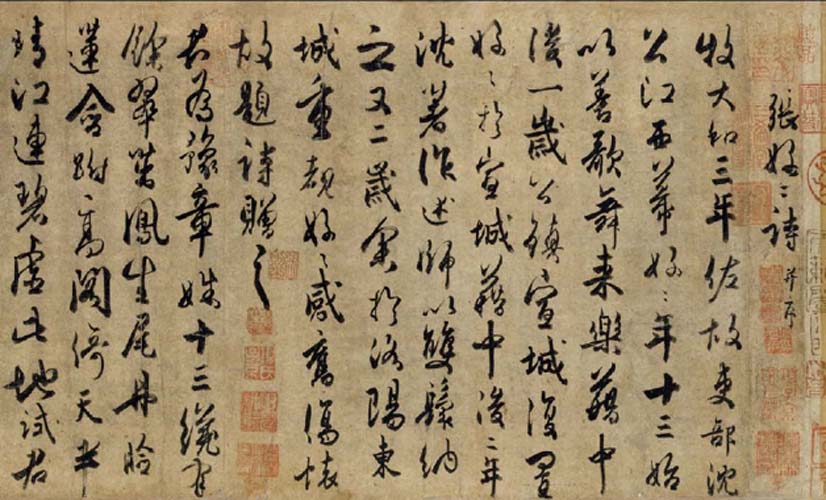 張好〻詩并序
牧大和三年佐故吏部沈
公江西幕好〻年十三始
以善歌舞來樂籍中
後一歲公鎮宣城復置
好〻於宣城籍中後二年
沈著作述師以雙鬟納
之又二歲余於洛陽東
城重覩好〻感舊傷懷
故題詩贈之
君為豫章姝十三纔有
餘翠茁鳳生尾丹臉
蓮含跗高閣倚天半
晴江連碧虛此地試君